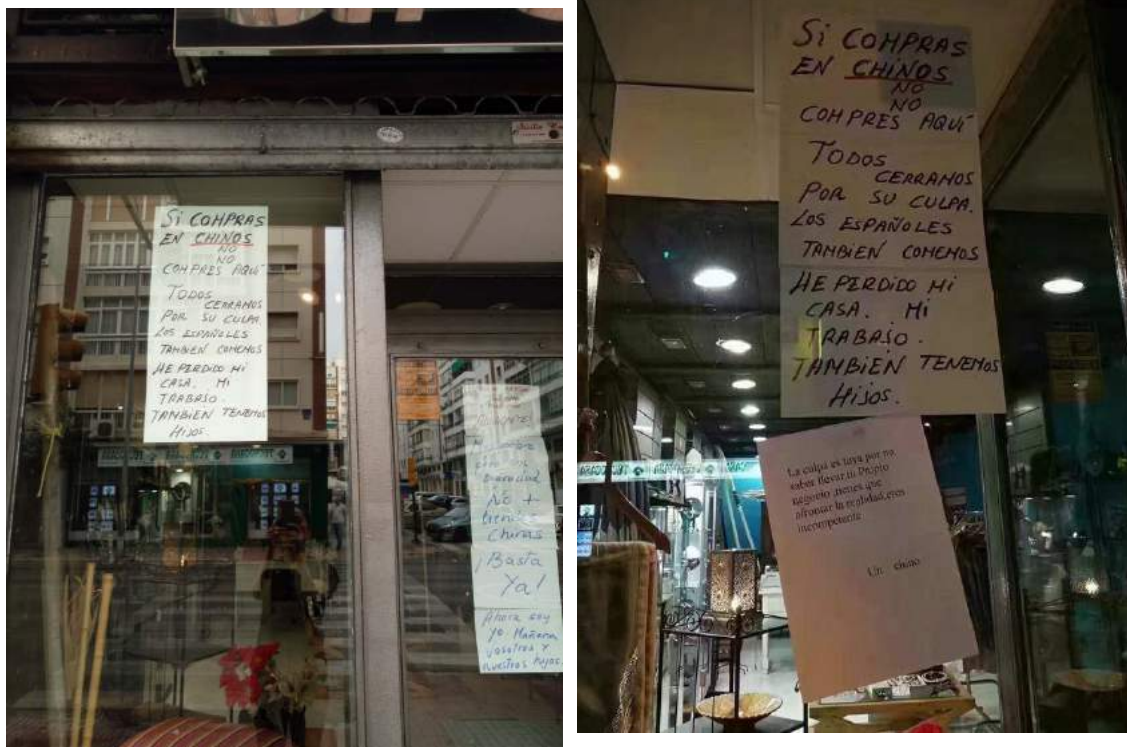 Si COMPRAS
EN CHINOS
NO
NO
COMPRES AQUÍ
TODOS
CERRAMOS
POR SU CULPA.
LOS ESPAÑOLES
TAMBIEN COMEMOS
HE PERDIDO MI
CASA. MI
TRABAJO.
TAMBIEN TENEMOS
HiJOS.
No +
tiendas
Chinas
¡Basta
Ya!
Ahora soy
yo. Mañana
vosotros y
nuestros hijos.
Si COMPRAS
EN CHINOS
NO
NO
COMPRES AQUÍ
TODOS
CERRAMOS
POR SU CULPA.
LOS ESPAÑOLES
TAMBIEN COMEMOS
HE PERDIDO MI
CASA. MI
TRABAJO.
TAMBIEN TENEMOS
HiJOS.
La culpa es tuya por no
saber llevar tu Propio
negocio ,tienes que
afrontar la realidad,eres
incompetente
Un chino